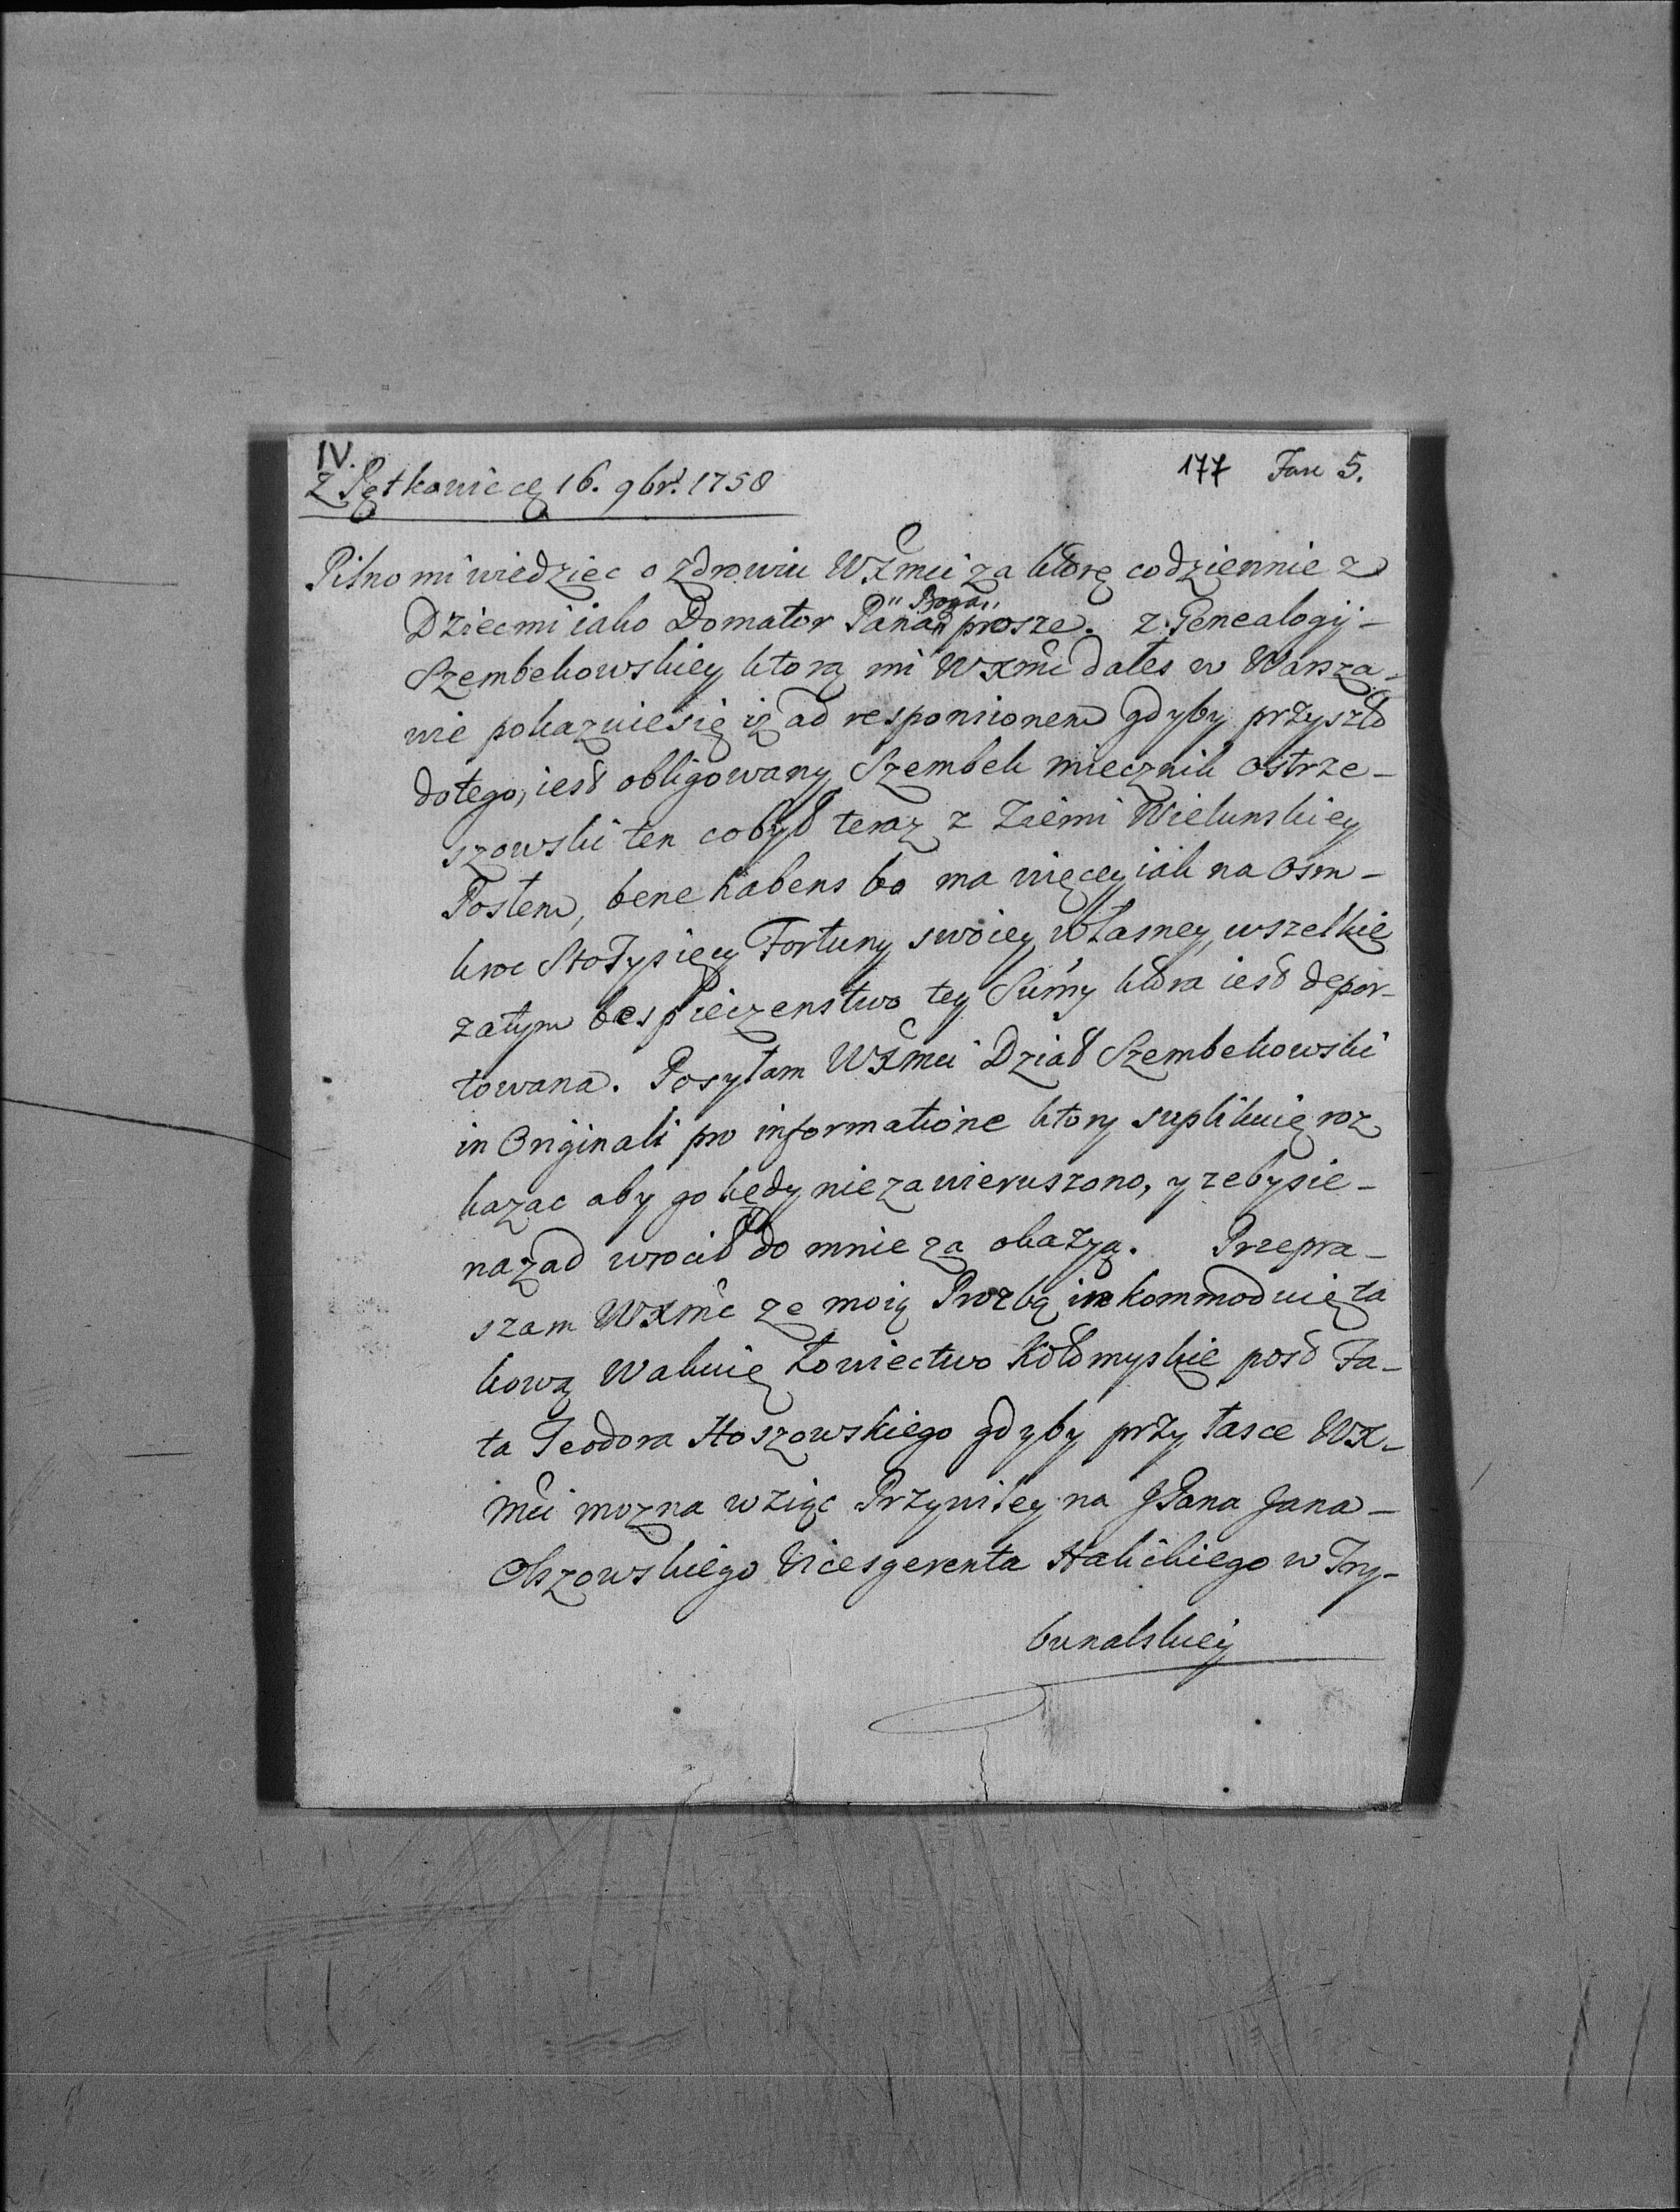 IV.
177 Fasc 5.
z Pętkowic cę 16. 9br. 1758
Pilno mi wiedziec o zdrowiu WXmci za ktorę codziennie z
Dziecmi iako Domator Pana „Boga„ prosze. z Genealogij -
Szembekowskiey ktorą mi WXmc dałes w Warsza-
wie pokazuie się iz ad responsionem gdyby przyszło
do tego, iest obligowany Szembek miecznik Ostrze-
szowski ten co był teraz z Ziemi Wielunskiey
Posłem, bene habens bo ma więcey iak na osm-
kroc Sto Tysięcy Fortuny swoiey własney, wszelkie
zatym bespieczenstwo tey Summy ktora iest depor-
towana. Posyłam WXmci Dział Szembekowski
in Originali pro informatione ktory suplikuię roz
kazac aby go kędy nie zawieruszono, y zeby sie -
nazad wrocił do mnie za okazyą. Przepra-
szam WXmc ze moią Prozbą inkommoduię ta
kową Wakuię Łowiectwo Kołomyskie post Fa-
ta Teodora Hoszowskiego gdyby przy łasce WX-
Mci mozna wziąc Przywiley na JPana Jana -
Olszowskiego Vicesgerenta Halickiego w Try-
bunalskiey